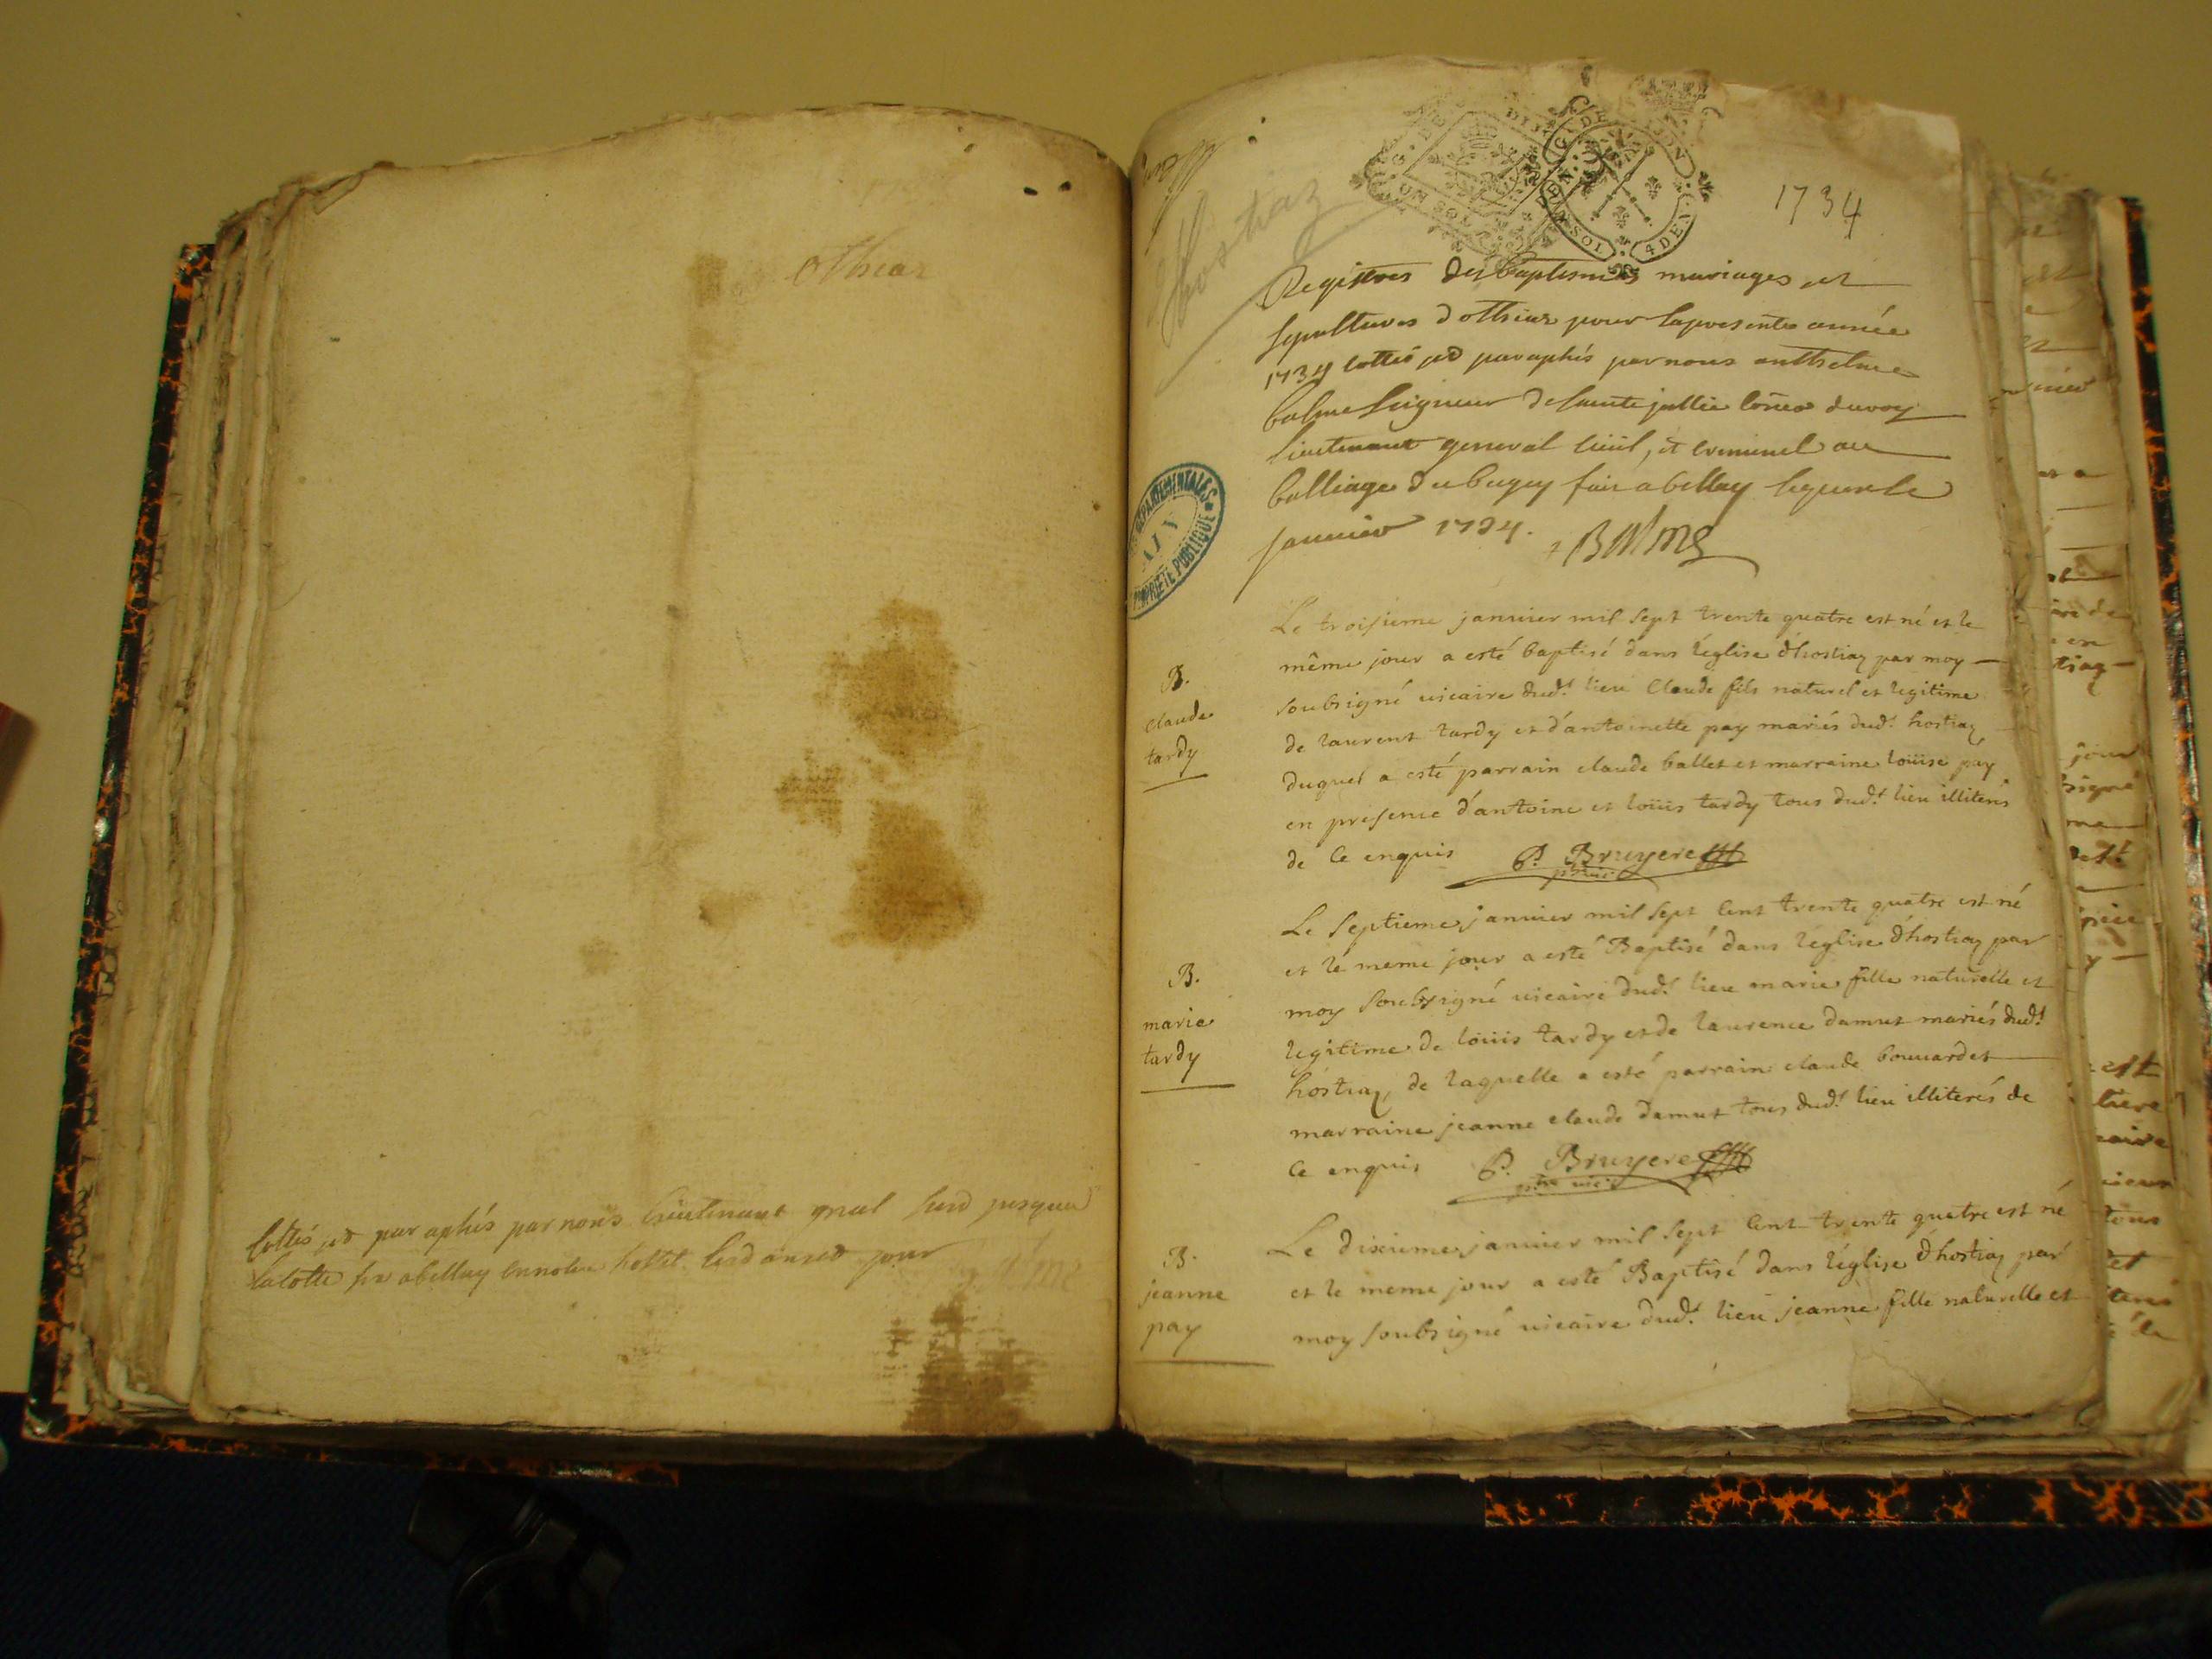 othiaz
Cottés et paraphés par nous lieutenant gnal susd jusques
lacotte a bellay en notre hostel lesd an et jour
Hostiaz
1734
Registres des baptesmes mariages et
sepultures dothiaz pour la presente année
1734 cottés et paraphés par nous anthelme
balme seigneur de sainte jullie coner du roy
lieutenant general civil, et criminel au
balliage du bugey fait a bellay le
janvier 1734. Balme
DEPARTEMENTALES
AIN
PROPRIETE PUBLIQUE
B.
claude
tardy
Le troisieme janvier mil sept trente quatre est né et le
même jour a esté baptisé dans l'église d'hostiaz par moy
soubsigné vicaire dud.t lieu Claude fils naturel et legitime
de laurent tardy et d'antoinette pay mariés dud.t hostiaz
duquel a esté parrain claude ballet et marraine loüise pay
en presence d'antoine et loüis tardy tous dud.t lieu illiterés
de ce enquis P. Bruyere
ptre vic.
B.
marie
tardy
Le septieme janvier mil sept cent trente quatre est né
et le meme jour a esté Baptisé dans l'église d'hostiaz par
moy soubsigné vicaire dud.t lieu marie fille naturelle et
legitime de loüis tardy et de laurence damut mariés dud.t
hostiaz, de laquelle a esté parrain claude bouvardet
marraine jeanne claude damut tous dud.t lieu illiterés de
ce enquis P. Bruyere
ptre vic.
B.
jeanne
pay
Le dixieme janvier mil sept cent trente quatre est né
et le meme jour a esté Baptisé dans l'église d'hostiaz par
moy soubsigné vicaire dud.t lieu jeanne fille naturelle et